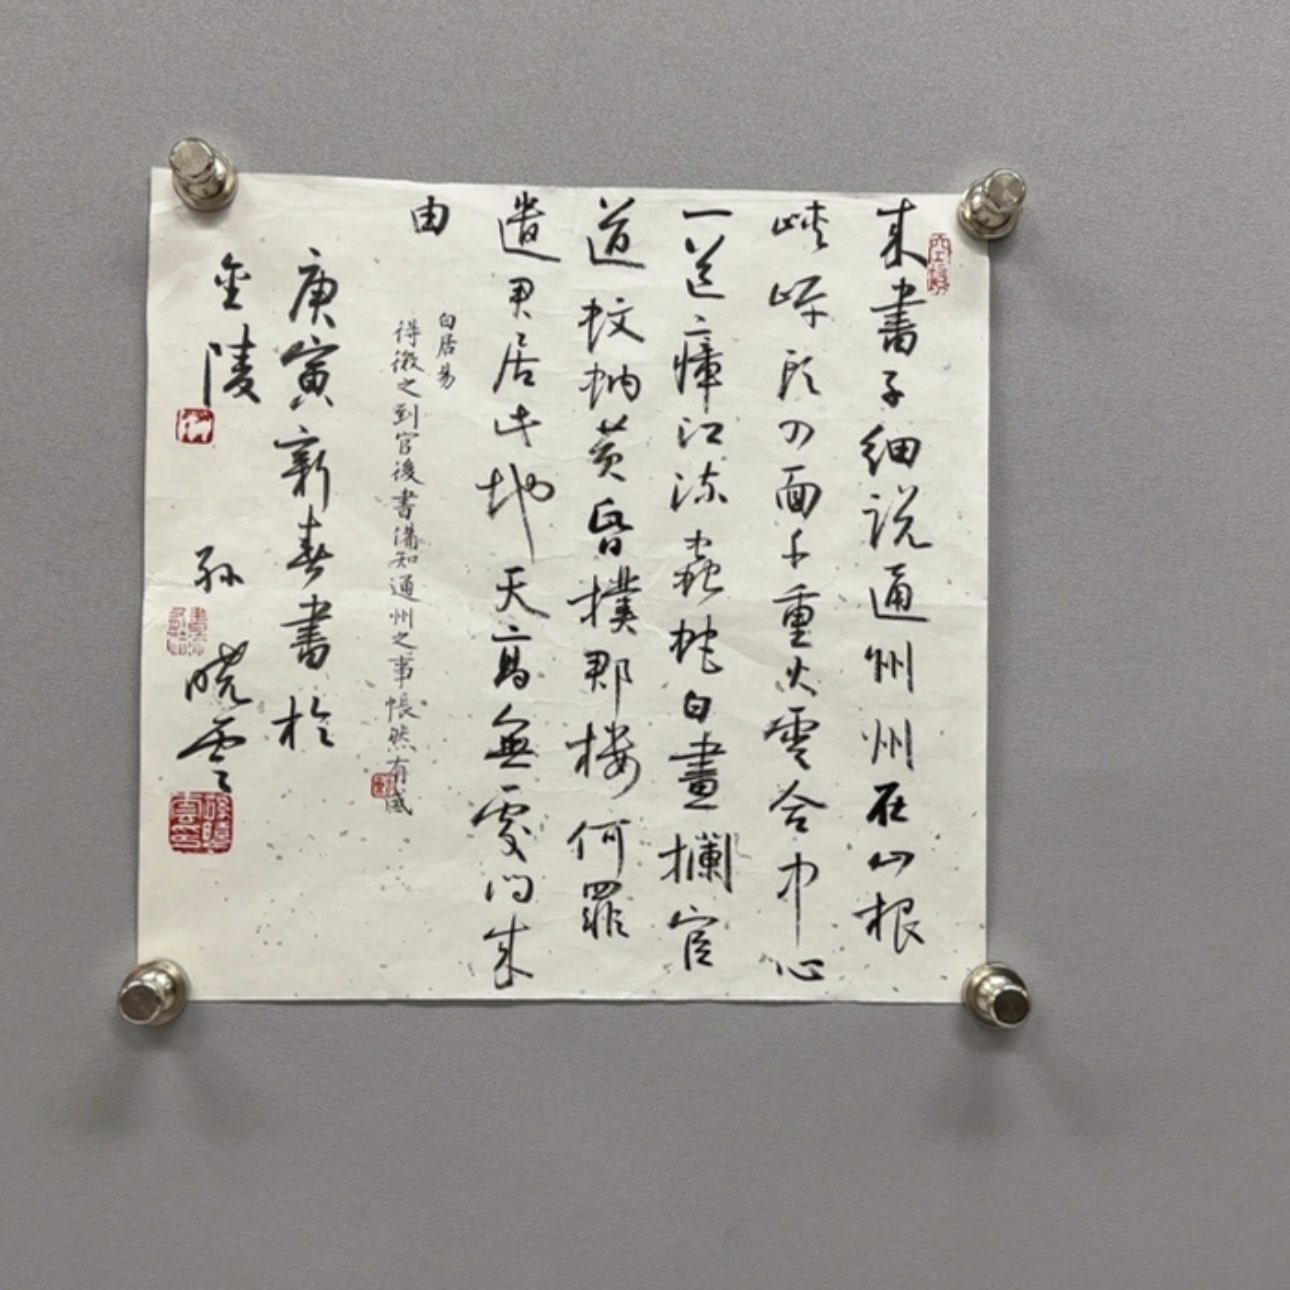 来書子細説通州州在山根
峽岸頭四面千重火雲合中心
一道瘴江流蟲蛇白晝攔官
道蚊蚋黄昏撲郡楼何罪
遣君居此地天高無處問来
由
白居易
得微之到官後書備知通州之事悵然有感
庚寅新春書於
金陵
孫曉雲